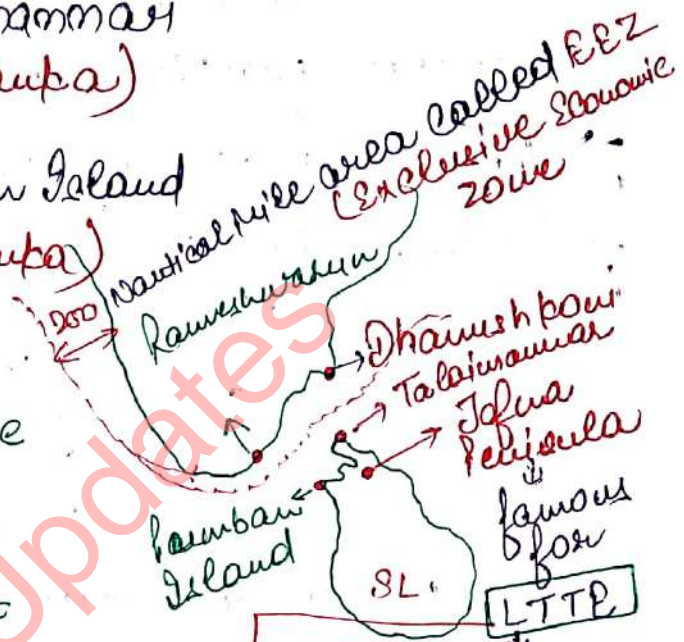 annar
uka)
n Island
uka)
200 Nautical mile area called EEZ
(Exclusive Economic
Zone
Rameshwaram
Dhanushkoni
Talaimannar
Jafna
Penisula
famous
for
LTTE
Pamban
Island
SL
e
c
Updates